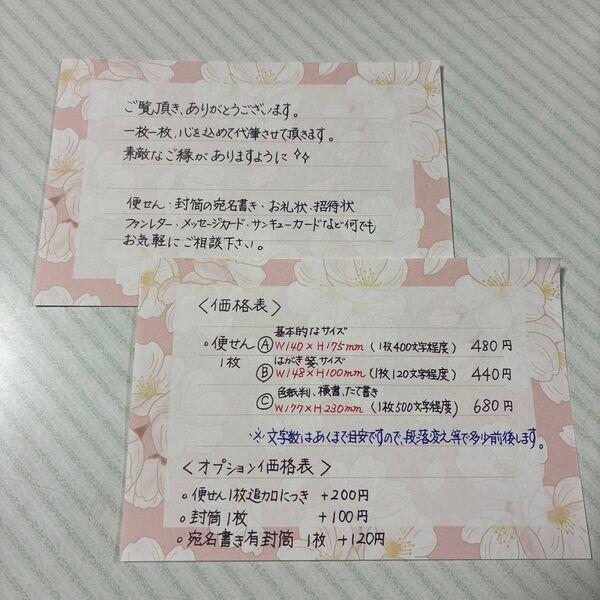 ご覧頂き、ありがとうございます。
一枚一枚、心を込めて代筆させて頂きます。
素敵なご縁がありますように✧✧
便せん・封筒の宛名書き・お礼状・招待状
ファンレター・メッセージカード・サンキューカードなど何でも
お気軽にご相談下さい。
〈価格表〉
基本的なサイズ
。便せん Ⓐ W140×H175mm (1枚400文字程度) 480円
1枚 はがき箋サイズ
Ⓑ W148×H100mm (1枚120文字程度) 440円
色紙判、横書、たて書き
Ⓒ W177×H230mm (1枚500文字程度) 680円
※文字数はあくまで目安ですので、段落変え等で多少前後します。
〈オプション価格表〉
。便せん1枚追加につき +200円
。封筒1枚 +100円
。宛名書き有封筒 1枚 +120円